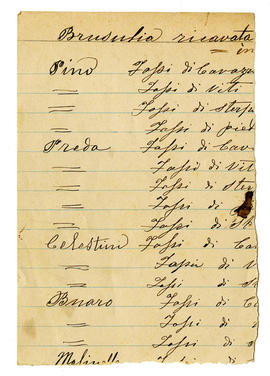 Brusulia ricavata
in
Pino Fassi di Cavazz
= Fassi di Viti
= Fassi di sterpa
= Fassi di pied
Preda Fassi di Cav
= Fassi di Vit
= Fassi di ster
= Fassi di
= Fassi di
Celestin Fassi di Ca
= Fassi di V
= Fassi di s
Buaro Fassi di
= Fassi di
= Fassi di
Molinella Fassi di